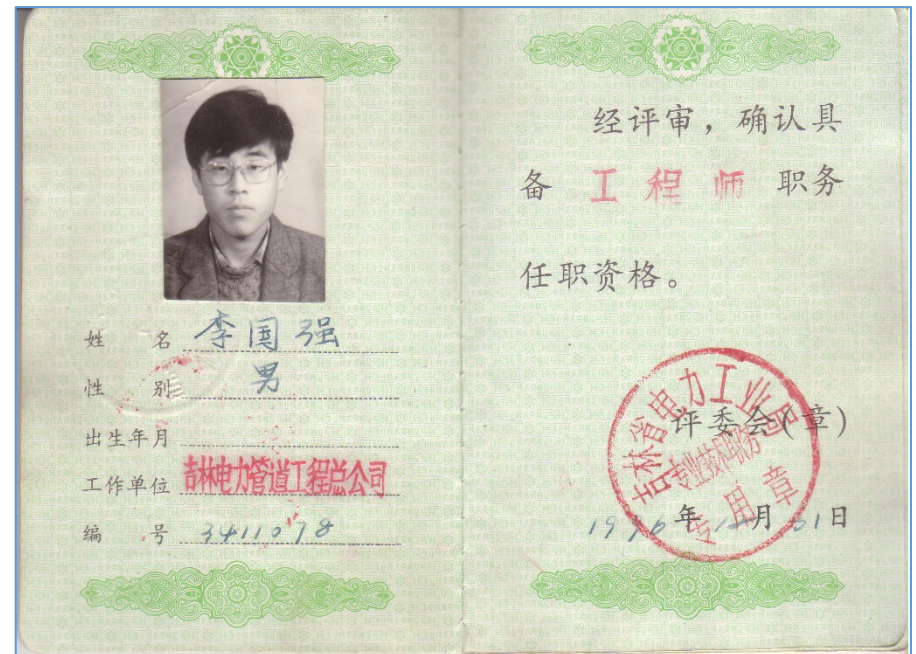 姓 名 李国强
性 别 男
出生年月
工作单位 吉林电力管道工程总公司
编 号 3411078
经评审，确认具
备 工程师 职务
任职资格。
吉林省电力工业局
评委会(章)
专业技术职务
专用章
1996年12月31日